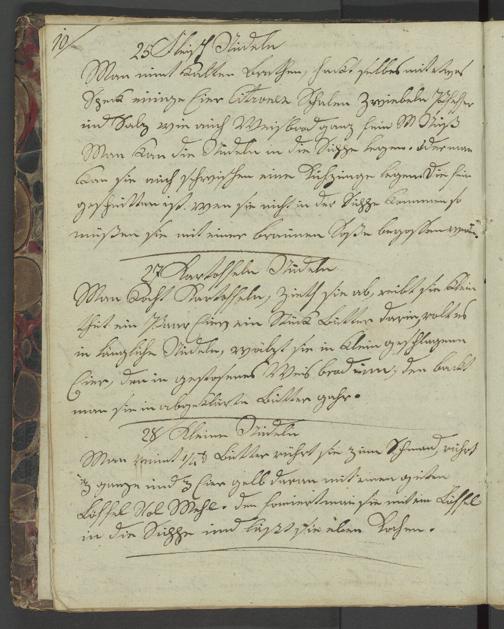 10
25 Fleisch Nudeln
Man nimt kalten Brathen, hackt selbes mit etwas
Speck einige Eier Citronen Schalen Zwiebeln Pfeffer
und Salz wie auch Weisbrod ganz fein M Nuß
Man kan die Nudeln in die Suppe legen. Oder man
kan sie auch zwischen eine legen die fein
geschnitten ist. wen sie nicht in der Suppe kommen so
müßen sie mit einer braunen Soße begossen werden.
27 Kartoffeln Nudeln
Man Kocht Kartoffeln, zieth sie ab, reibt sie klein
thut ein Paar Eier ein Stück Butter darin, rolt es
in längliche Nudeln, wälzt sie in klein geschlagene
Eier, den in gestosenes Weis brod um, den backt
man sie in abgeklärte Butter gahr.
28 Kleine Nudeln
Man nimt 1/4 ℔ Butter rührt sie zum Schmand, rührt
2 ganze und 2 Eier gelb daran mit einen guten
Löffel Vol Mehl. den formiert man sie mit ein Löffel
in die Suppe und läßt sie eben Kochen.